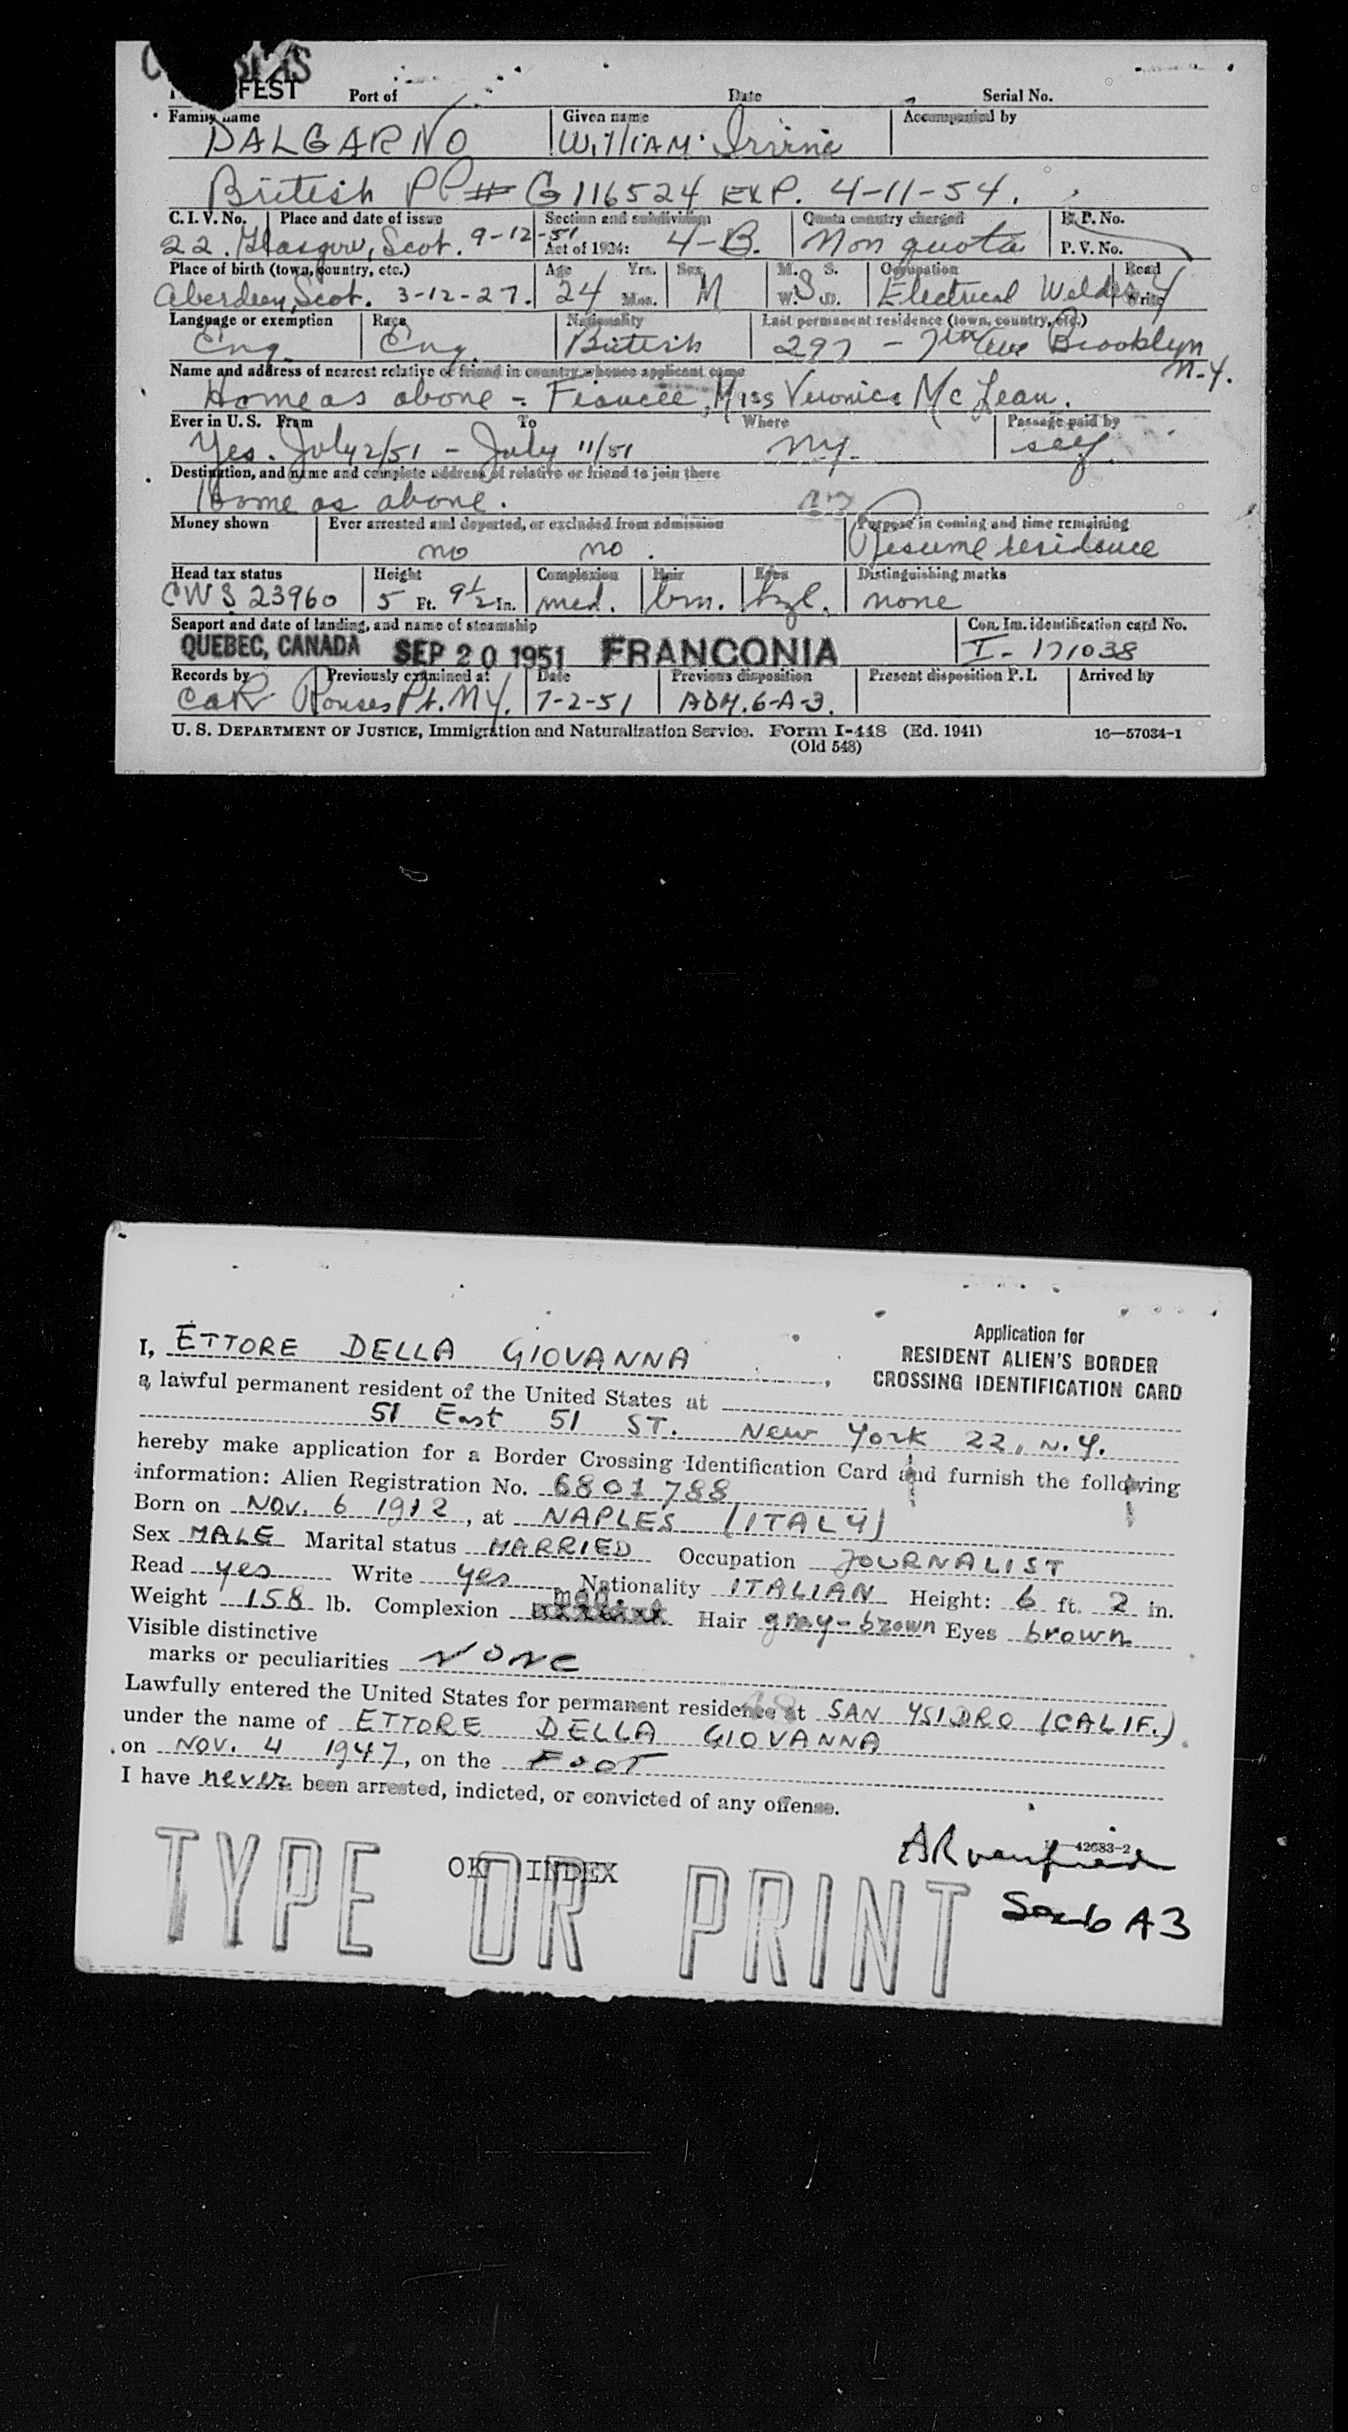 FEST Port of Date Serial No.
Family name Given name Accompanied by
DALGARNO William Irvine
British PP# G116524 EXP. 4-11-54.
C. I. V. No. Place and date of issue Section and subdivision Quota country charged R. P. No.
22. Glasgow, Scot. 9-12-51 Act of 1924: 4-B. Non quota P. V. No.
Place of birth (town, country, etc.) Age Yrs. Sex M. S. Occupation Read
Aberdeen, Scot. 3-12-27. 24 Mos. M W. S D. Electrical Welder Write Y
Language or exemption Race Nationality Last permanent residence (town, country, etc.)
Eng. Eng. British 297 - 7th Ave Brooklyn
N.Y.
Name and address of nearest relative or friend in country whence applicant came
Home as above - Fiancee, Miss Veronica McLean.
Ever in U. S. From To Where Passage paid by
Yes. July 2/51 - July 11/51 NY. self.
Destination, and name and complete address of relative or friend to join there
Home as above.
Money shown Ever arrested and deported, or excluded from admission Purpose in coming and time remaining
no no. Resume residence
Head tax status Height Complexion Hair Eyes Distinguishing marks
CWS 23960 5 Ft. 9½ In. med. brn. hzl. none
Seaport and date of landing, and name of steamship Con. Im. identification card No.
QUEBEC, CANADA SEP 20 1951 FRANCONIA I- 171038
Records by Previously examined at Date Previous disposition Present disposition P. I. Arrived by
CaR Rouses Pt. NY. 7-2-51 ADM. 6-A-3.
U. S. DEPARTMENT OF JUSTICE, Immigration and Naturalization Service. Form I-448 (Ed. 1941) 16—57034-1
(Old 548)
Application for
RESIDENT ALIEN'S BORDER
CROSSING IDENTIFICATION CARD
I, ETTORE DELLA GIOVANNA,
a lawful permanent resident of the United States at
51 East 51 ST. New York 22, N.Y.
hereby make application for a Border Crossing Identification Card and furnish the following
information: Alien Registration No. 6801788
Born on NOV. 6 1912, at NAPLES (ITALY)
Sex MALE Marital status MARRIED Occupation JOURNALIST
Read yes Write yes Nationality ITALIAN Height: 6 ft. 2 in.
Weight 158 lb. Complexion med. Hair gray-brown Eyes brown
Visible distinctive
marks or peculiarities NONE
Lawfully entered the United States for permanent residence at SAN YSIDRO (CALIF.)
under the name of ETTORE DELLA GIOVANNA
on NOV. 4 1947, on the FOOT
I have never been arrested, indicted, or convicted of any offense.
42683-2
AR verified
OK INDEX
TYPE OR PRINT
Sec 6 A3